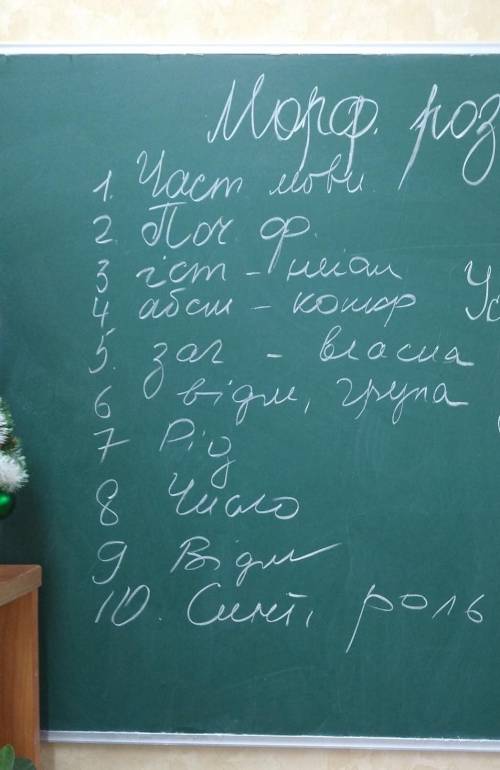 Морф. роз
1. Част мови
2. Поч. ф.
3 іст - неіст
4 абст - конкр
5. заг - власна
6 відм, група
7 Рід
8 Число
9 Відм
10. Синт, роль